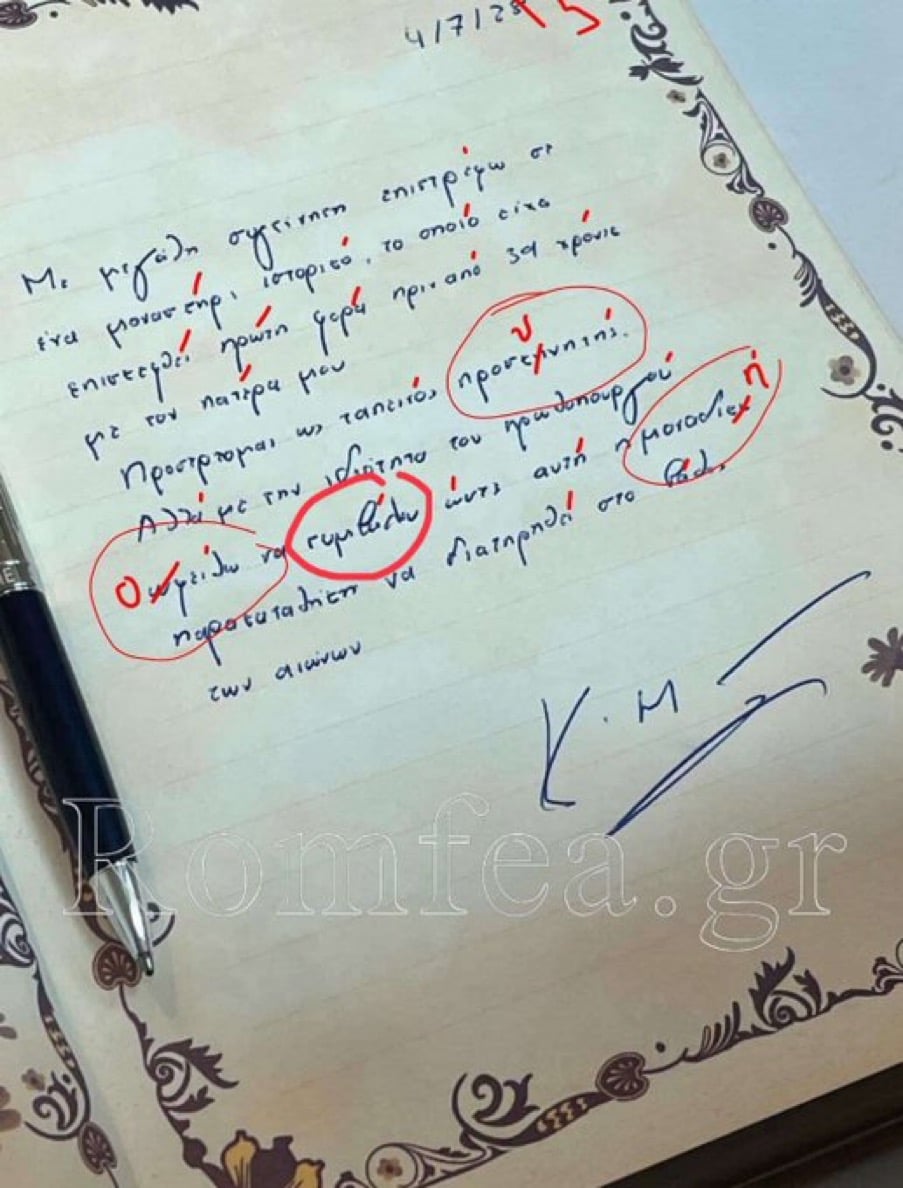 4/7/25
Με μεγάλη συγκίνηση επιστρέφω σε
ένα μοναστήρι, ιστορικό, το οποίο είχα
επισκεφθεί πρώτη φορά πριν από 39 χρόνια
με τον πατέρα μου
Προσέρχομαι ως ταπεινός προσκυνητής.
Αλλά με την ιδιότητα του πρωθυπουργού
Οφείλω να συμβάλω ώστε αυτή η μοναδική
παρακαταθήκη να διατηρηθεί στο βάθος
των αιώνων
Κ. Μ
Romfea.gr